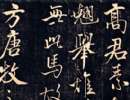 高君素
翹舉雄
無此馬故
方唐牧